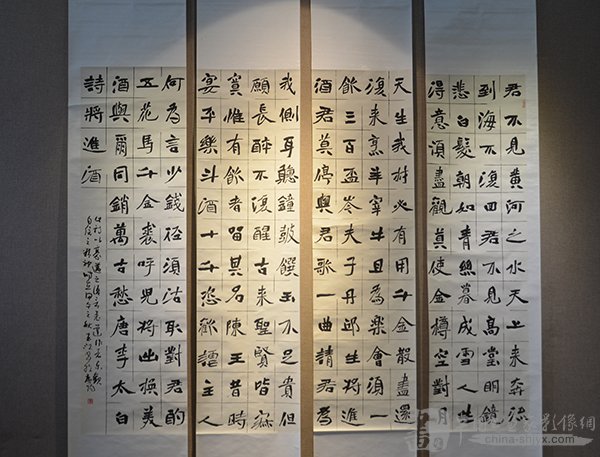 君不見黃河之水天上來奔流
到海不復回君不見高堂明鏡
悲白髮朝如青絲暮成雪人生
得意須盡歡莫使金樽空對月
天生我材必有用千金散盡還
復來烹羊宰牛且為樂會須一
飲三百盃岑夫子丹邱生將進
酒君莫停與君歌一曲請君為
我側耳聽鐘鼓饌玉不足貴但
願長醉不復醒古來聖賢皆寂
寞惟有飲者留其名陳王昔時
宴平樂斗酒十千恣歡謔主人
何為言少錢徑須沽取對君酌
五花馬千金裘呼兒將出換美
酒與爾同銷萬古愁唐李太白
詩將進酒
影像網
www.china-shjyx.com